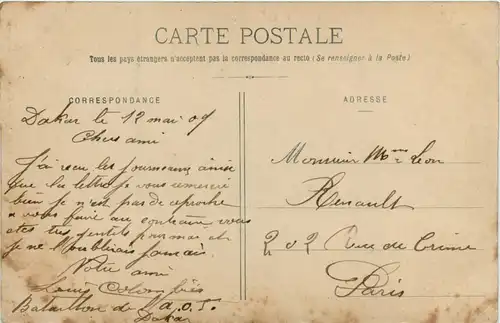 CARTE POSTALE
Tous les pays étrangers n'acceptent pas la correspondance au recto (Se renseigner à la Poste)
CORRESPONDANCE
Dakar le 12 mai 09
Cher ami
J'ai reçu les journeaux ainsi
que la lettre je vous remercie
bien je n'est pas de reproche
a vous faire au contraire vous
etes tres gentils pour moi et
je ne oublirais jamais
Votre ami
Louis
Bataillon de l'a.o.f.
Dakar
ADRESSE
Monsieur Mme Leon
Renault
202 Rue de Crime
Paris